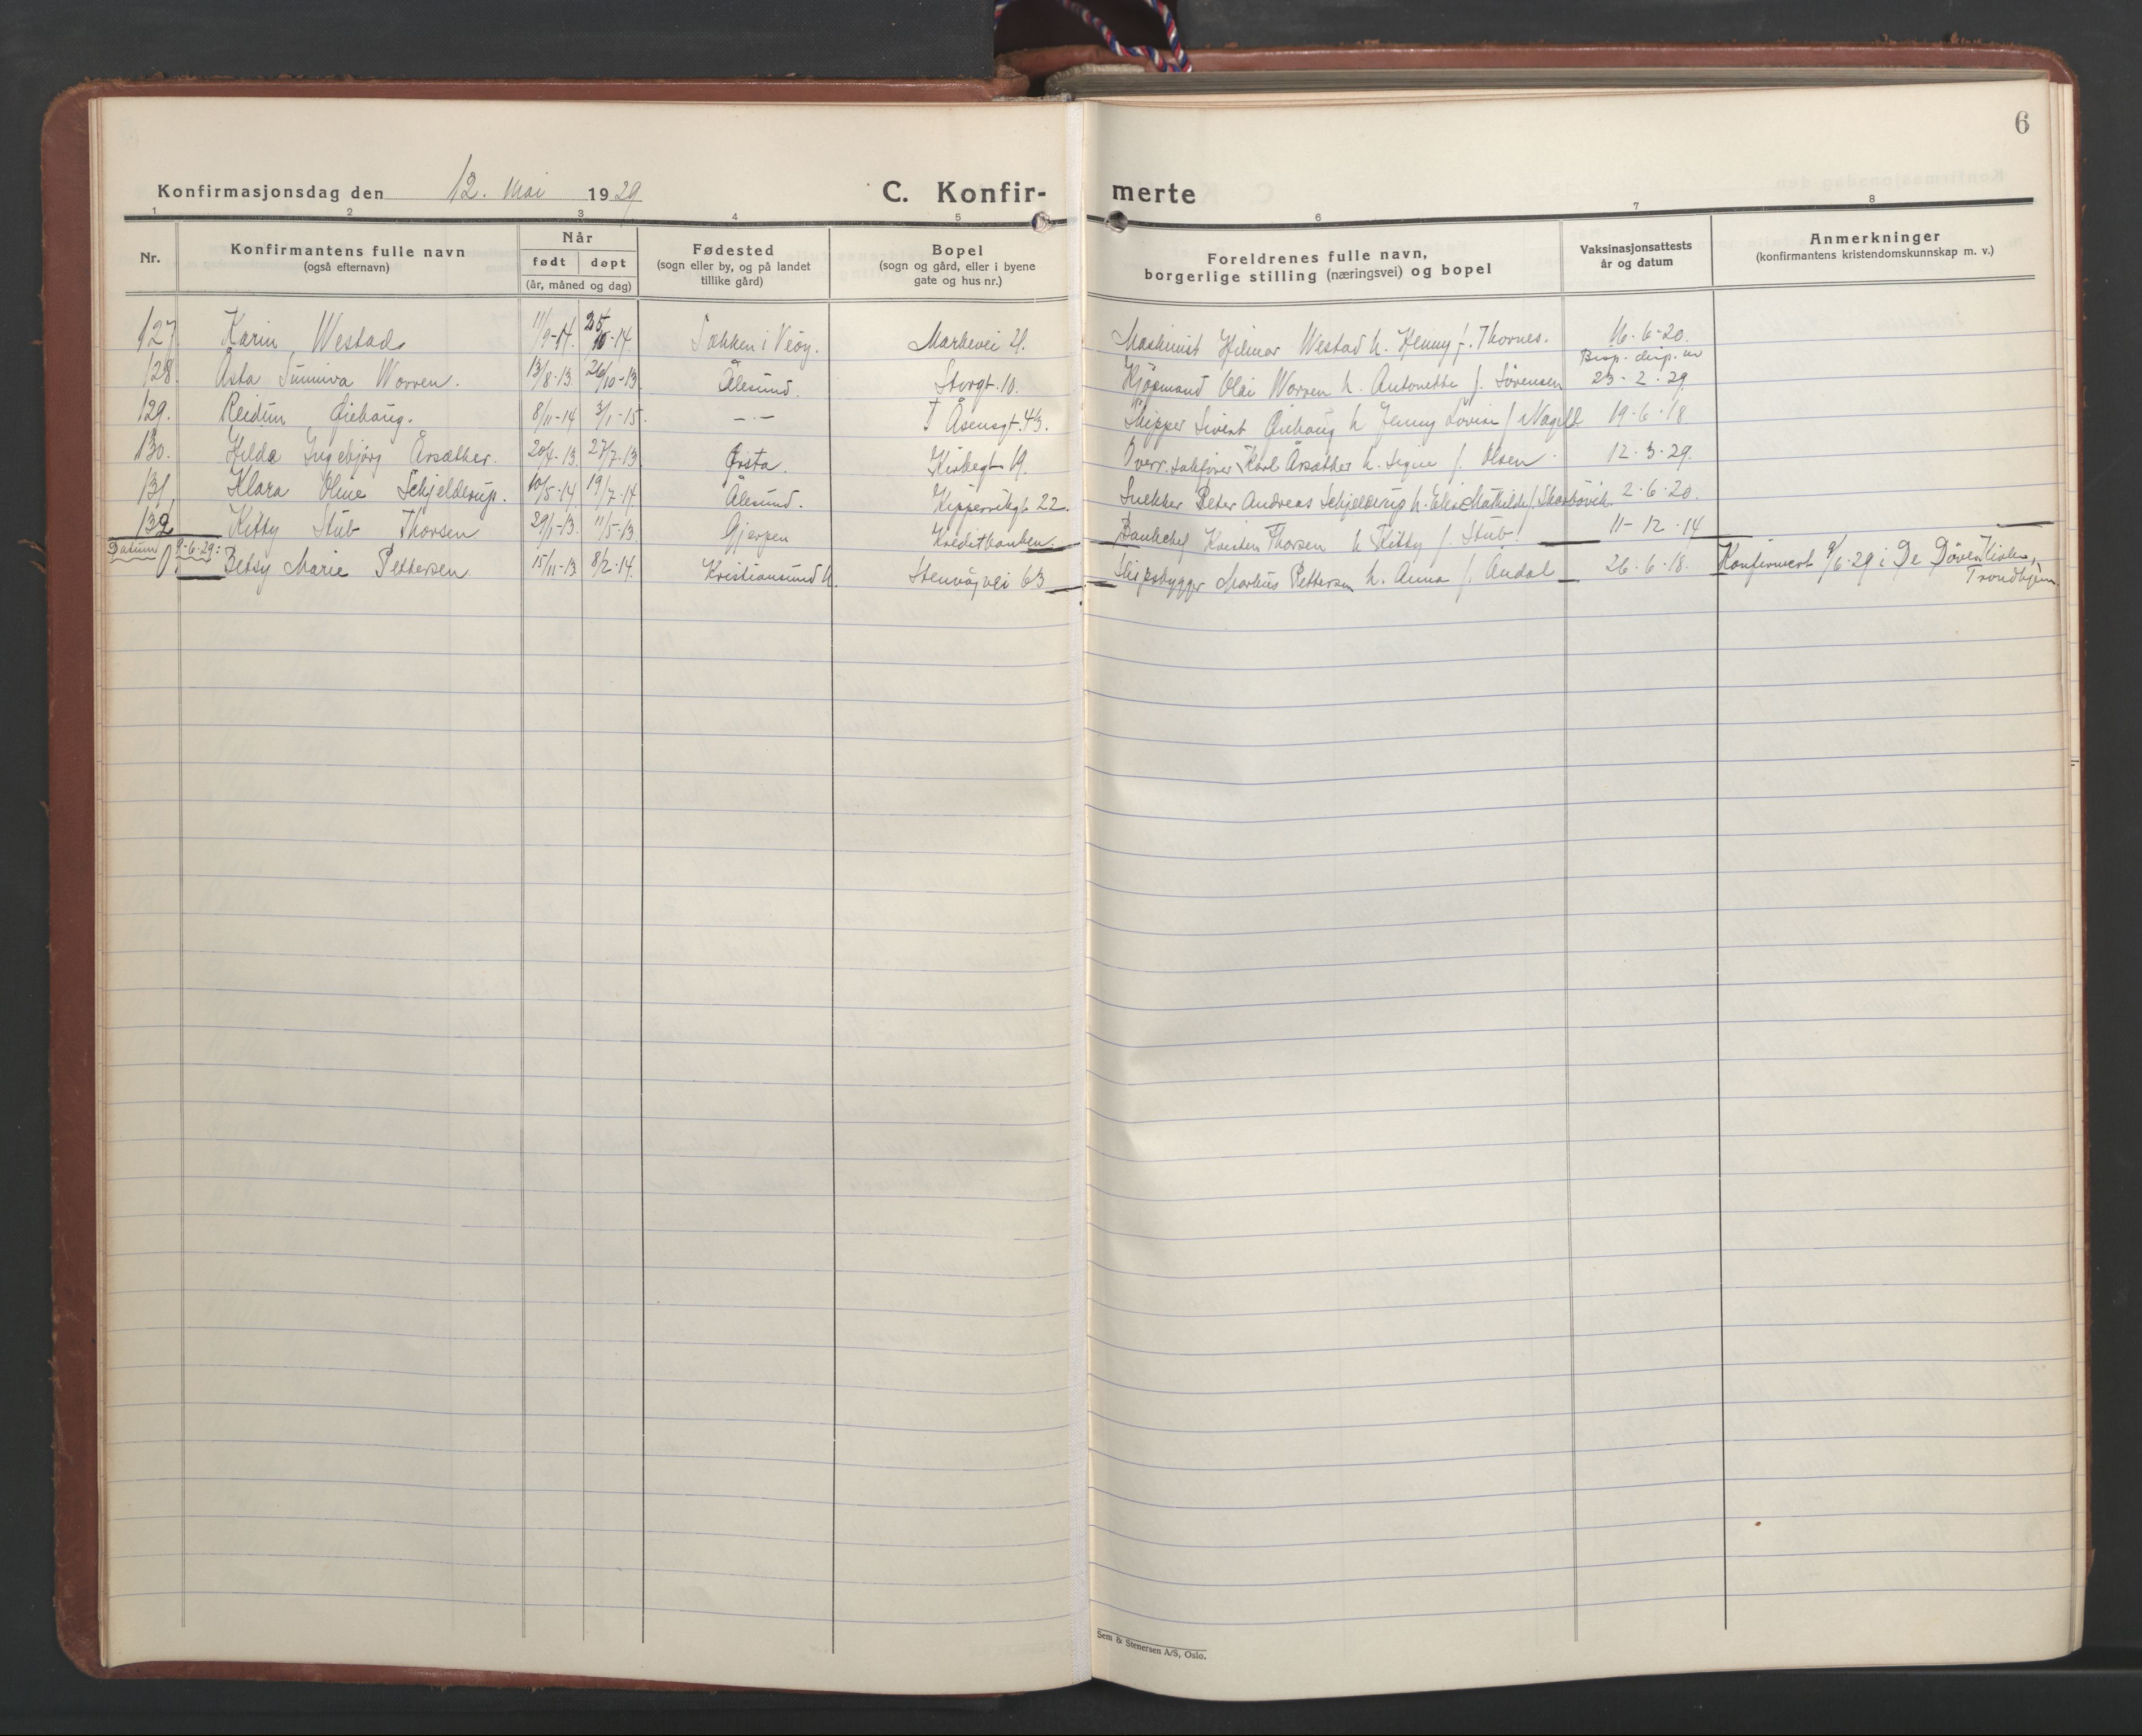 6
Konfirmasjonsdag den 12. Mai 1929 C. Konfir- merte
1 2 3 4 5 6 7 8
Nr. Konfirmantens fulle navn (også efternavn) Når født døpt (år, måned og dag) Fødested (sogn eller by, og på landet tillike gård) Bopel (sogn og gård, eller i byene gate og hus nr.) Foreldrenes fulle navn, borgerlige stilling (næringsvei) og bopel Vaksinasjonsattests år og datum Anmerkninger (konfirmantens kristendomskunnskap m. v.)
127 Karin Westad 11/9-14. 25/10-14 Sækken i Veøy. Markevei 21. Maskinist Hilmar Westad h. Henny f. Thornes. 16-6-20.
128. Asta Sunniva Worren. 13/8-13 26/10-13 Ålesund. Storgt. 10. Kjøpmand Olai Worren h. Antonette f. Sørensen Bisp. disp. av 23-2-29
129. Reidun Giehaug. 8/11-14 3/1-15. -"- Åsensgt. 43. Skipper Sivert Giehaug h Jenny Lovise f. 19-6-18
130. Hilda Ingebjørg Årsæther. 20/4-13. 27/7-13 Ørsta. Kirkegt 19. Overr. sakfører Karl Årsæther h. Signe f. Olsen 12-3-29.
131. Klara Oline Schjelderup. 10/5-14 19/7-14 Ålesund. Kippervikgt 22. Snekker Peter Andreas Schjelderup h. Elise Mathilde f. 2-6-20.
132 Kitty Stub Thorsen 29/1-13. 11/5-13. Gjerpen Kreditbanken. Bankchef Karsten Thorsen h Kitty f. Stub. 11-12-14
Datum 9-6-29: Betsy Marie Pettersen. 15/11-13 8/2-14. Kristiansund N. Stenvågvei 63 Skipsbygger Markus Pettersen h. Anna f. Åndal 26-6-18. Konfirmert 9/6-29 i De Døves Kirke, Trondhjem
Sem & Stenersen A/S, Oslo.